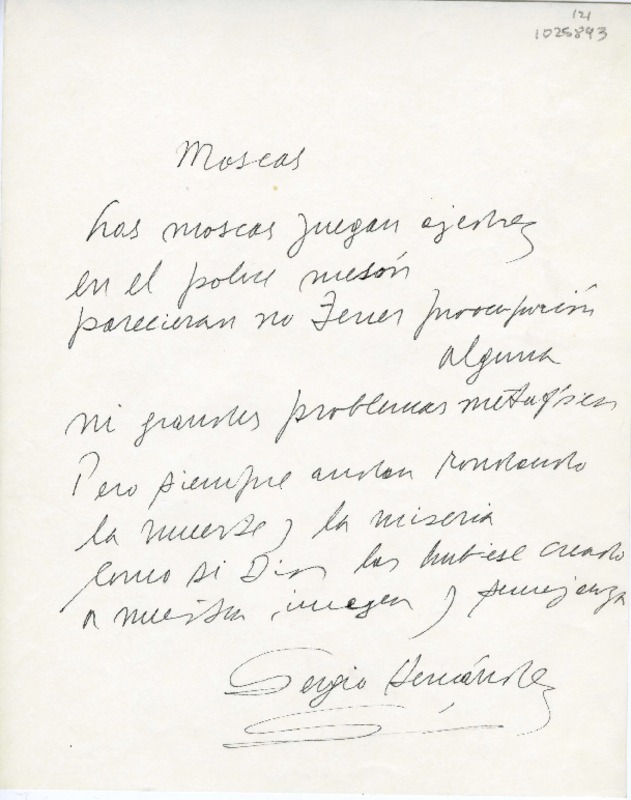 121
1025893
Moscas
Las moscas juegan ajedrez
en el pobre mesón
parecieran no tener preocupación
alguna
ni grandes problemas metafísicos
Pero siempre andan rondando
la muerte y la miseria
como si Dios las hubiese creado
a nuestra imagen y semejanza
Sergio Hernández